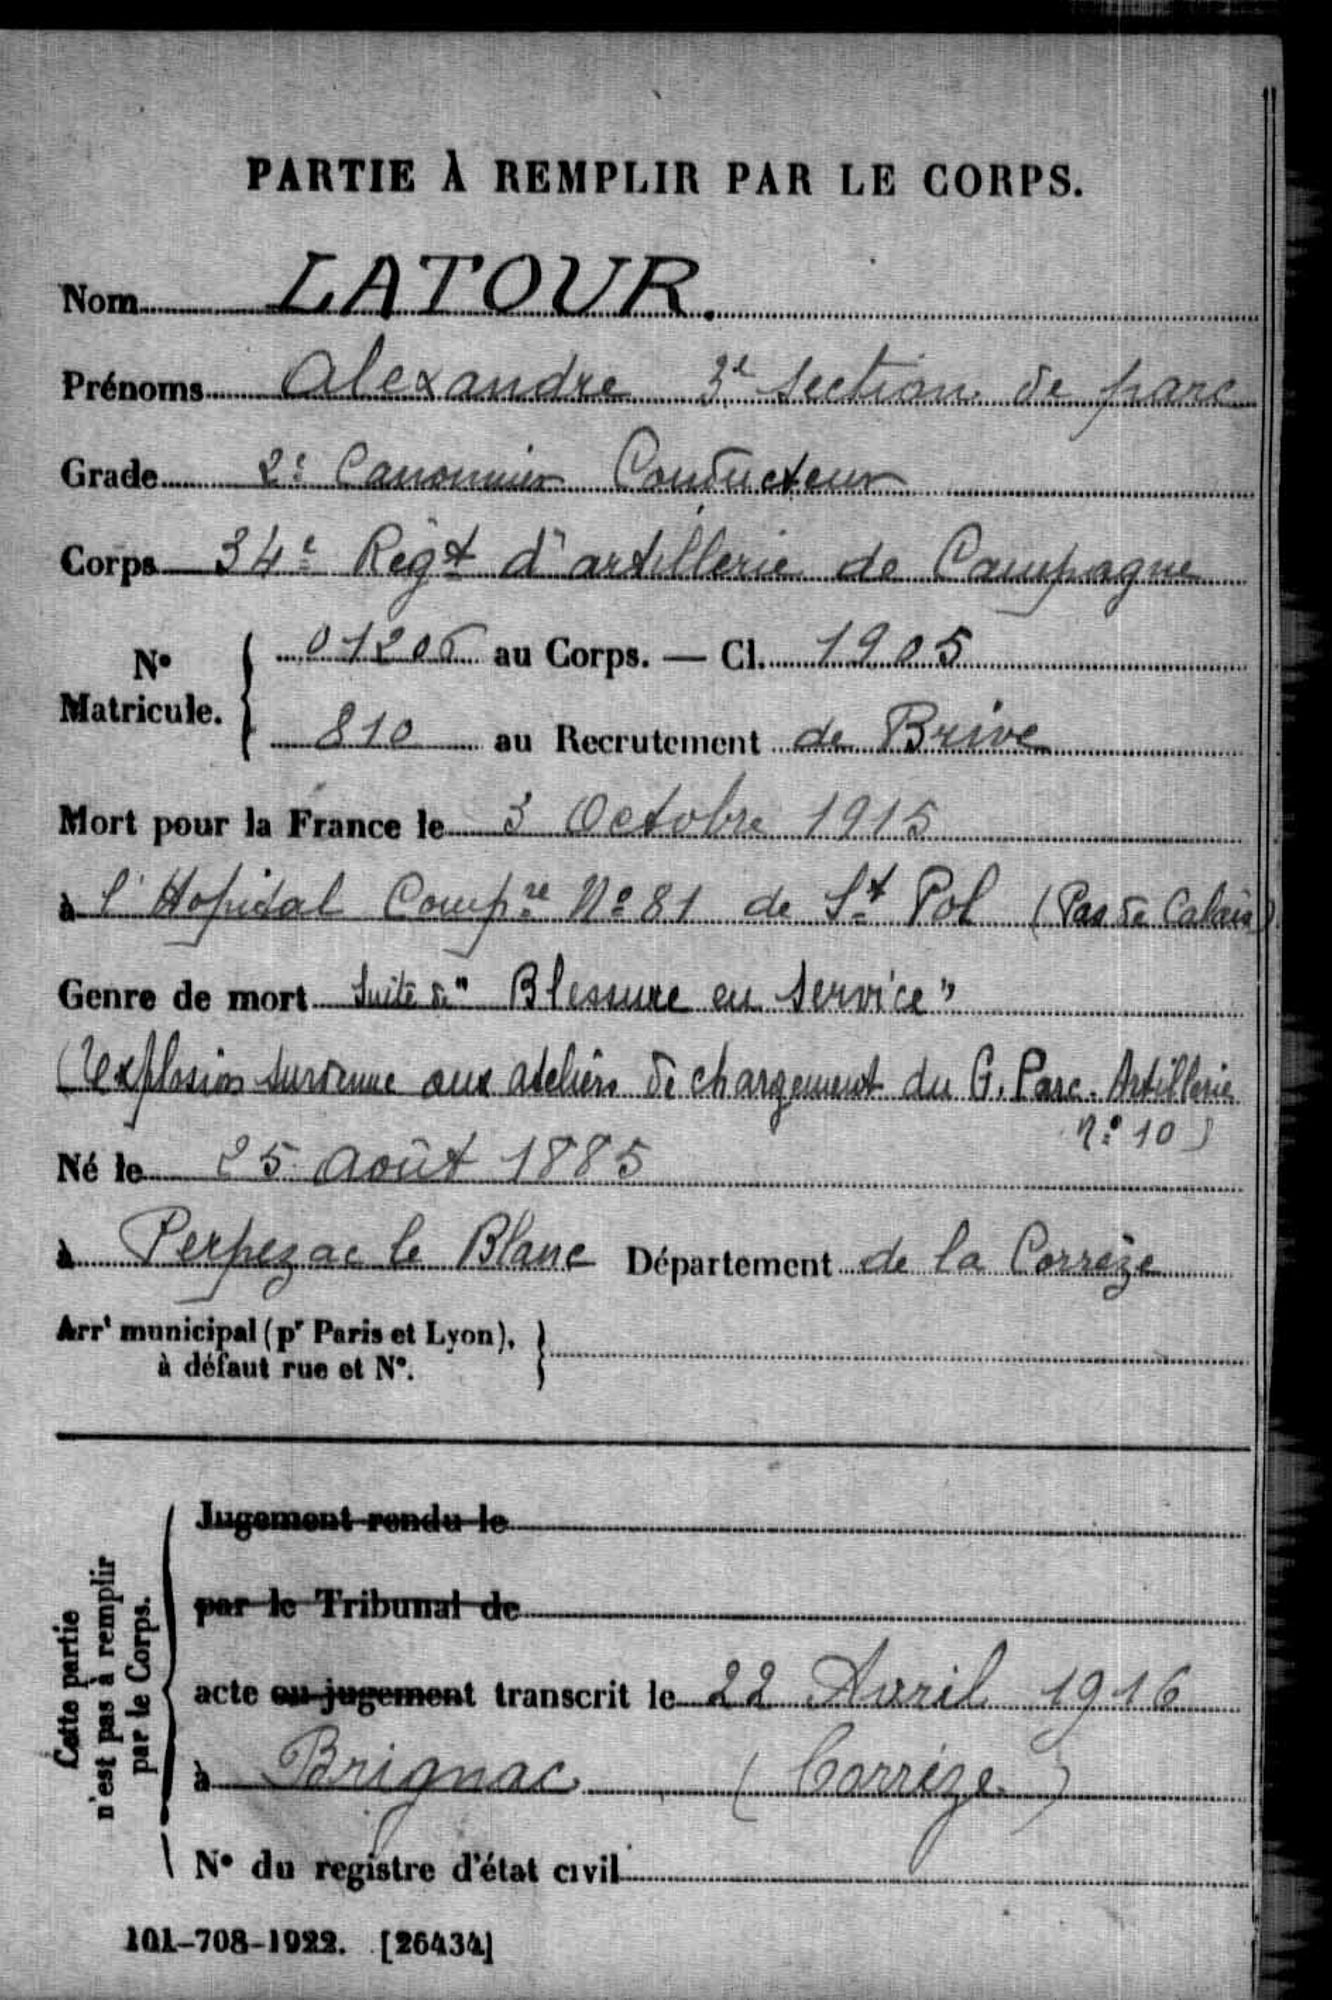 PARTIE À REMPLIR PAR LE CORPS.
Nom LATOUR.
Prénoms Alexandre 3e section de parc
Grade 2e Canonnier Conducteur
Corps 34e Régt d'artillerie de Campagne
N° Matricule. { 01206 au Corps. — Cl. 1905
810 au Recrutement de Brive
Mort pour la France le 3 Octobre 1915
à l'Hopital Compre No 81 de St Pol (Pas de Calais)
Genre de mort Suite de "Blessure en service"
(explosion survenue aux ateliers de chargement du G. Parc. Artillerie
n° 10)
Né le 25 Août 1885
à Perpezac le Blanc Département de la Corrèze
Arrt municipal (pr Paris et Lyon), }
à défaut rue et N°.
Cette partie
n'est pas à remplir
par le Corps.
Jugement rendu le
par le Tribunal de
acte ou jugement transcrit le 22 Avril 1916
à Brignac (Corrèze)
N° du registre d'état civil
101-708-1922. [26434]